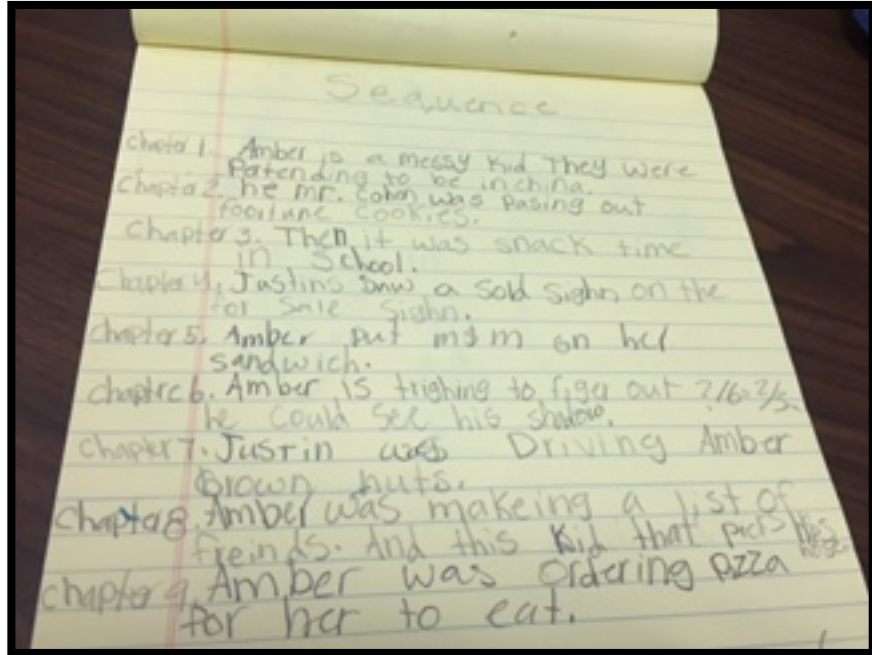 Sequence
Chapter 1. Amber is a messy kid They were
Patending to be in china.
Chapter 2. he mr. Cohen was Pasing out
foortune cookies.
Chapter 3. Then it was snack time
in School.
Chapter 4. Justins saw a Sold Sighn on the
for Sale Sighn.
Chapter 5. Amber put m$m on her
sandwich.
Chaptre 6. Amber is trighing to figer out
he could See his shadow.
Chapter 7. Justin was Driving Amber
Brown nuts.
Chapter 8. Amber was makeing a list of
freinds. And this Kid that picks his
Chapter 9. Amber was ordering pzza
for her to eat.